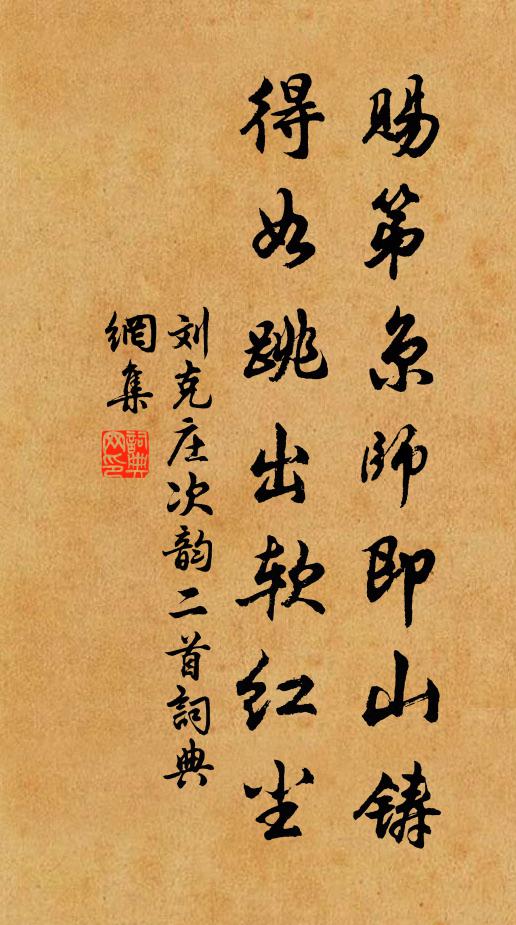 赐第京师即山铸
得如跳出软红尘
刘克庄次韵二首詞典
網集
詞典
网印